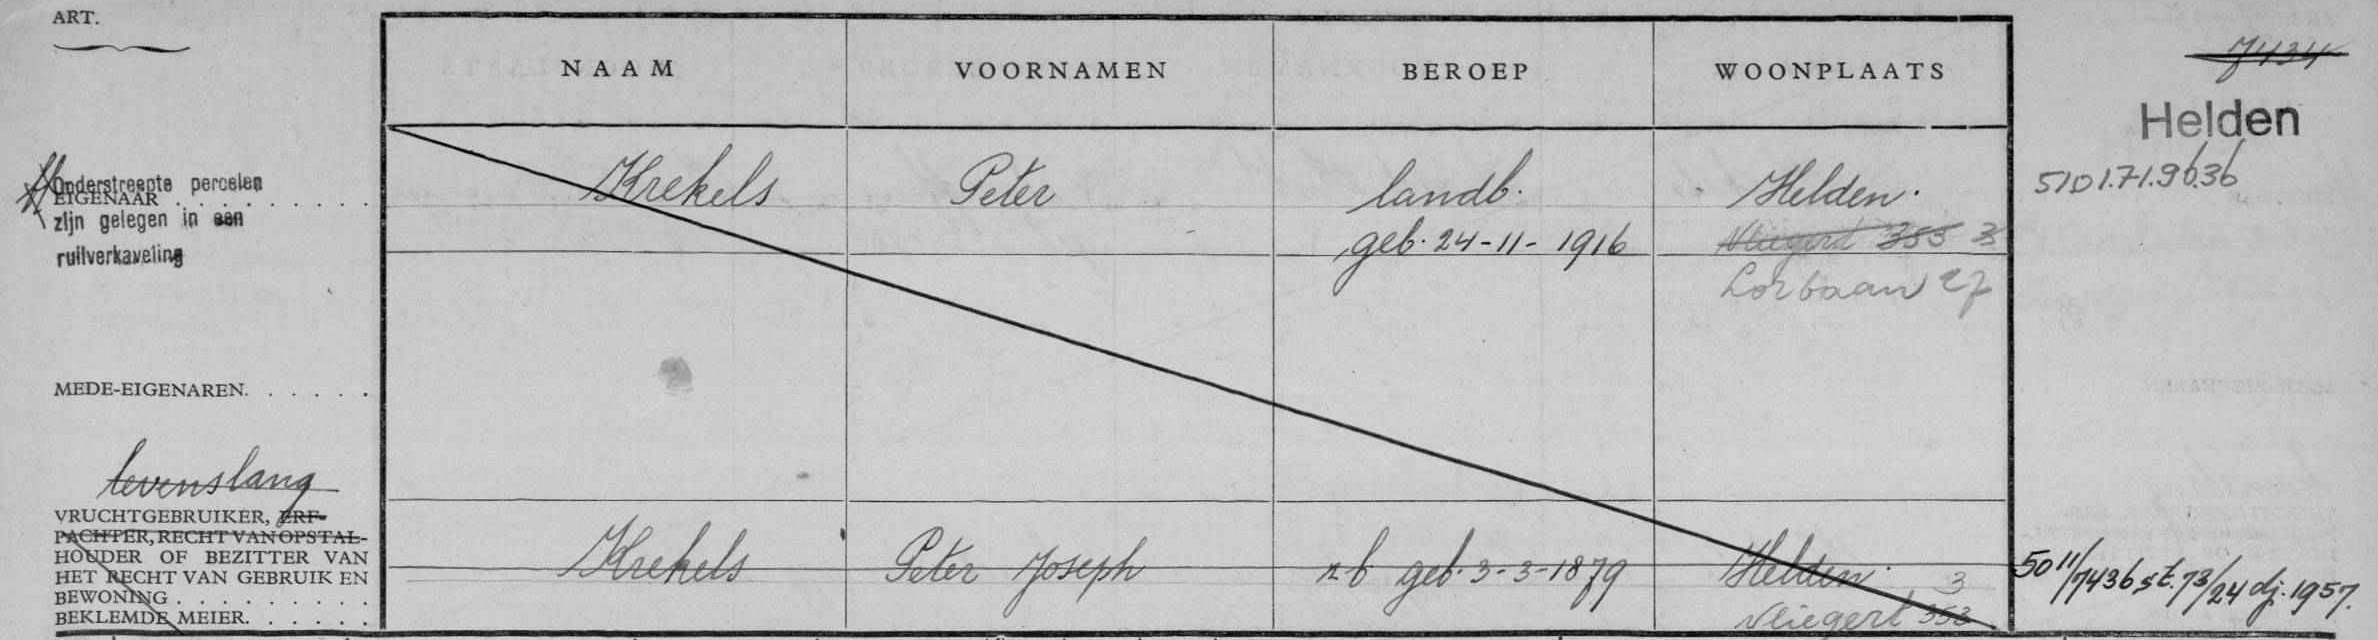 ART.
NAAM VOORNAMEN BEROEP WOONPLAATS
7434
Helden
Onderstreepte percelen
EIGENAAR . . . . . . . . . .
zijn gelegen in een
ruilverkaveling
Krekels Peter landb. Helden.
geb. 24-11-1916 Vliegert 353 3
Lorbaan 27
5101.71.9636
MEDE-EIGENAREN. . . . . .
levenslang
VRUCHTGEBRUIKER, ERF-
PACHTER, RECHT VAN OPSTAL-
HOUDER OF BEZITTER VAN
HET RECHT VAN GEBRUIK EN
BEWONING . . . . . . . . . .
BEKLEMDE MEIER. . . . . .
Krekels Peter Joseph z.b. geb. 3-3-1879 Helden. 3
Vliegert 353
5011/7436 st. 73/24 dj. 1957.